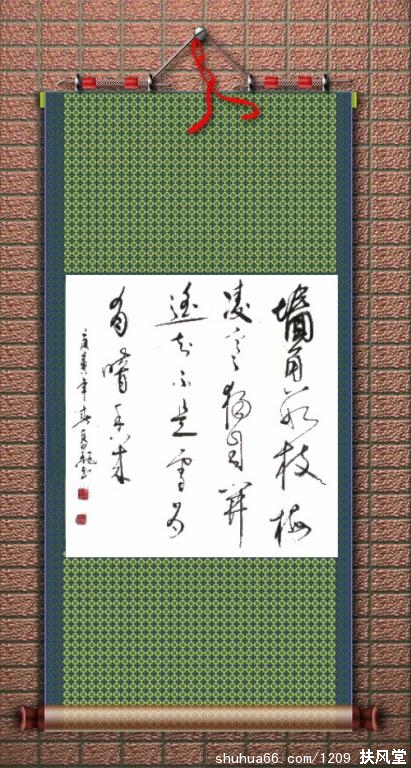 墙角数枝梅
凌寒独自開
遥知不是雪为
有暗香来
庚寅年
shuhua66.com/1209 扶风堂